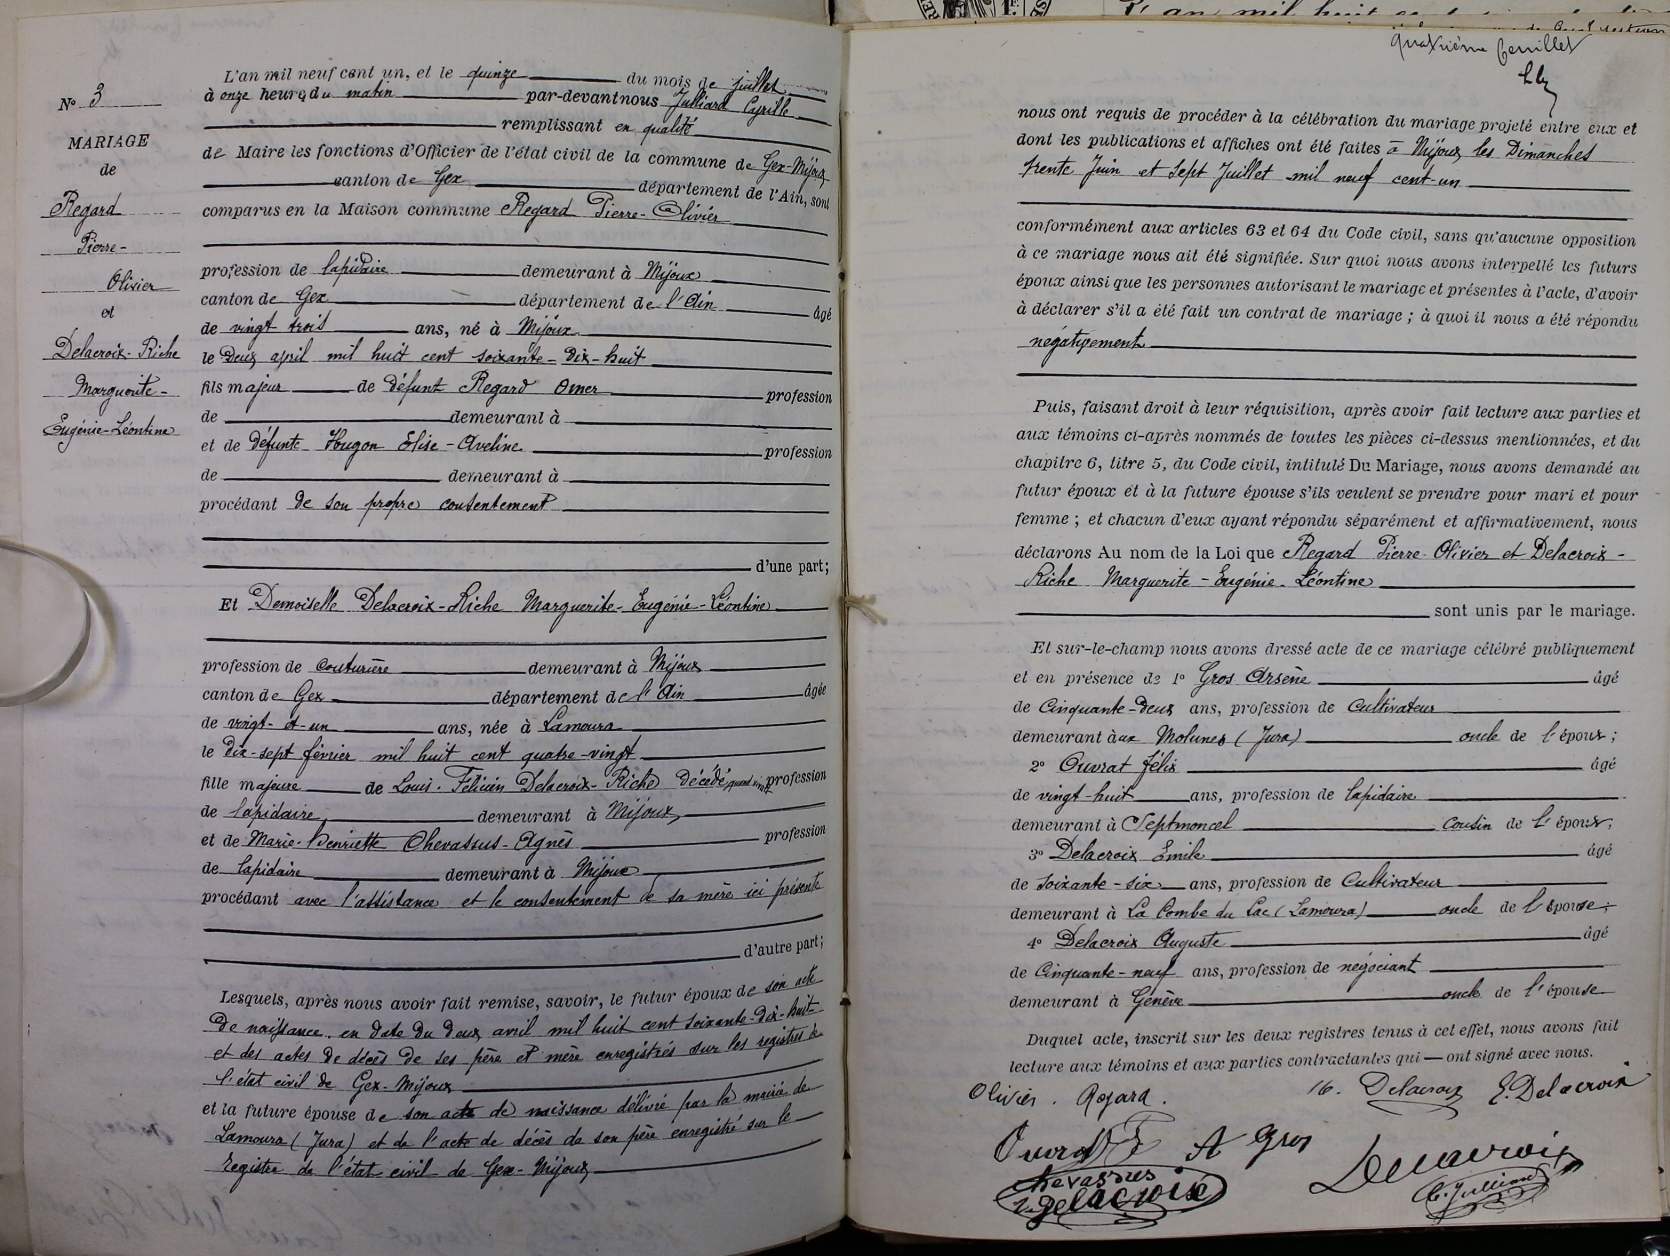 N° 3
MARIAGE
de
Regard
Pierre-
Olivier
et
Delacroix-Riche
Marguerite-
Eugénie-Léontine
L'an mil neuf cent un, et le quinze du mois de juillet
à onze heures du matin par-devant nous Julliard Cyrille
remplissant en qualité
de Maire les fonctions d'Officier de l'état civil de la commune de Gex-Mijoux
canton de Gex département de l'Ain, sont
comparus en la Maison commune Regard Pierre-Olivier
profession de lapidaire demeurant à Mijoux
canton de Gex département de l'Ain âgé
de vingt trois ans, né à Mijoux
le deux april mil huit cent soixante-dix-huit
fils majeur de défunt Regard Omer profession
de demeurant à
et de défunte Hugon Elise-Aveline profession
de demeurant à
procédant de son propre consentement
d'une part;
Et Demoiselle Delacroix-Riche Marguerite-Eugénie-Léontine
profession de couturière demeurant à Mijoux
canton de Gex département de l'Ain âgée
de vingt-et-un ans, née à Lamoura
le dix-sept février mil huit cent quatre-vingt
fille majeure de Louis-Félicien Delacroix-Riche décédé quand vivait profession
de lapidaire, demeurant à Mijoux,
et de Marie-Henriette Chevassus-Agnès profession
de lapidaire demeurant à Mijoux
procédant avec l'assistance et le consentement de sa mère ici présente
d'autre part;
Lesquels, après nous avoir fait remise, savoir, le futur époux de son acte
de naissance en date du deux avril mil huit cent soixante-dix-huit
et des actes de décès de ses père et mère enregistrés sur les registres de
l'état civil de Gex-Mijoux
et la future épouse de son acte de naissance délivré par la mairie de
Lamoura (Jura) et de l'acte de décès de son père enregistré sur le
registre de l'état civil de Gex-Mijoux
quatrième feuillet
nous ont requis de procéder à la célébration du mariage projeté entre eux et
dont les publications et affiches ont été faites à Mijoux les Dimanches
trente Juin et sept Juillet mil neuf cent-un
conformément aux articles 63 et 64 du Code civil, sans qu'aucune opposition
à ce mariage nous ait été signifiée. Sur quoi nous avons interpellé les futurs
époux ainsi que les personnes autorisant le mariage et présentes à l'acte, d'avoir
à déclarer s'il a été fait un contrat de mariage ; à quoi il nous a été répondu
négativement
Puis, faisant droit à leur réquisition, après avoir fait lecture aux parties et
aux témoins ci-après nommés de toutes les pièces ci-dessus mentionnées, et du
chapitre 6, titre 5, du Code civil, intitulé Du Mariage, nous avons demandé au
futur époux et à la future épouse s'ils veulent se prendre pour mari et pour
femme ; et chacun d'eux ayant répondu séparément et affirmativement, nous
déclarons Au nom de la Loi que Regard Pierre-Olivier et Delacroix-
Riche Marguerite-Eugénie-Léontine
sont unis par le mariage.
Et sur-le-champ nous avons dressé acte de ce mariage célébré publiquement
et en présence de 1° Gros Arsène âgé
de Cinquante-deux ans, profession de Cultivateur
demeurant aux Molunes (Jura) oncle de l'époux;
2° Ouvrat félix âgé
de vingt-huit ans, profession de lapidaire
demeurant à Septmoncel cousin de l'époux;
3° Delacroix Emile âgé
de soixante-six ans, profession de Cultivateur
demeurant à La Combe du Lac (Lamoura) oncle de l'épouse;
4° Delacroix Auguste âgé
de Cinquante-neuf ans, profession de négociant
demeurant à Genève oncle de l'épouse
Duquel acte, inscrit sur les deux registres tenus à cet effet, nous avons fait
lecture aux témoins et aux parties contractantes qui — ont signé avec nous.
Olivier. Regard. M. Delacroix E. Delacroix
Ouvrat F A Gros Delacroix
Chevassus C. Julliard
Ve Delacroix